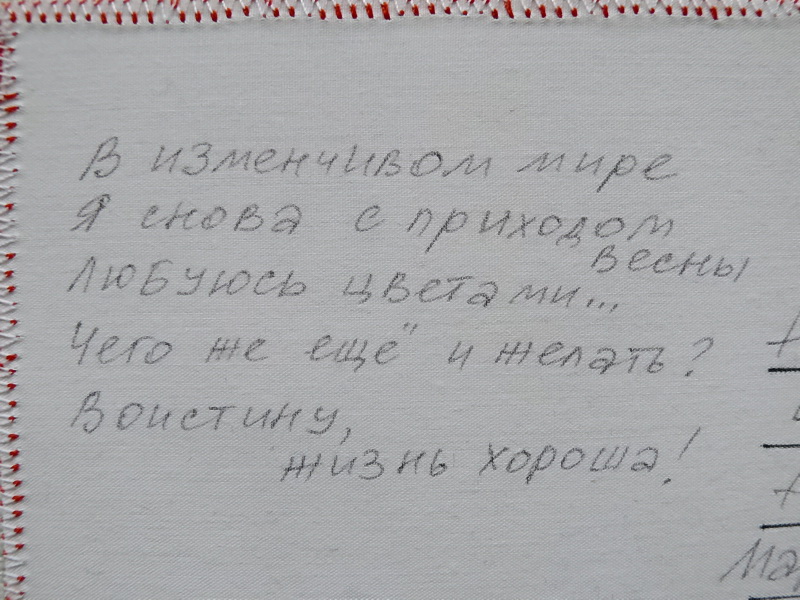 В изменчивом мире
Я снова с приходом
весны
Любуюсь цветами...
Чего же ещё и желать?
Воистину,
жизнь хороша!